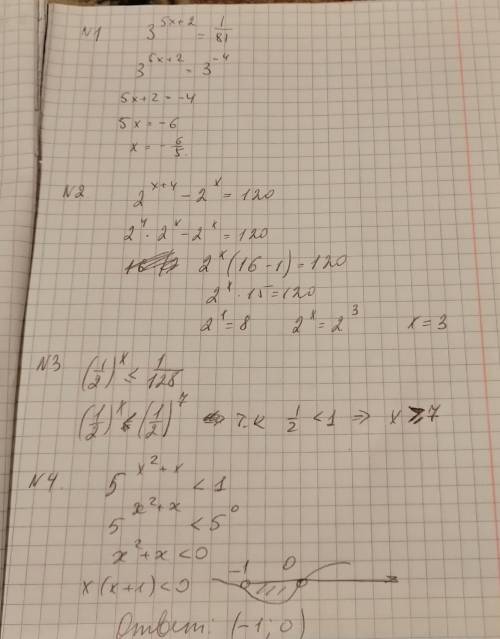 N1 3^{5x+2} = 1/81
3^{5x+2} = 3^{-4}
5x+2 = -4
5x = -6
x = -6/5
N2 2^{x+4} - 2^x = 120
2^4 · 2^x - 2^x = 120
2^x (16-1) = 120
2^x · 15 = 120
2^1 = 8 2^x = 2^3 x = 3
N3 (1/2)^x ≤ 1/128
(1/2)^x ≤ (1/2)^7 т.к 1/2 < 1 ⇒ x ⩾ 7
N4. 5^{x^2+x} < 1
5^{x^2+x} < 5^0
x^2+x < 0
x(x+1) < 0 -1 0
Ответ: (-1; 0)